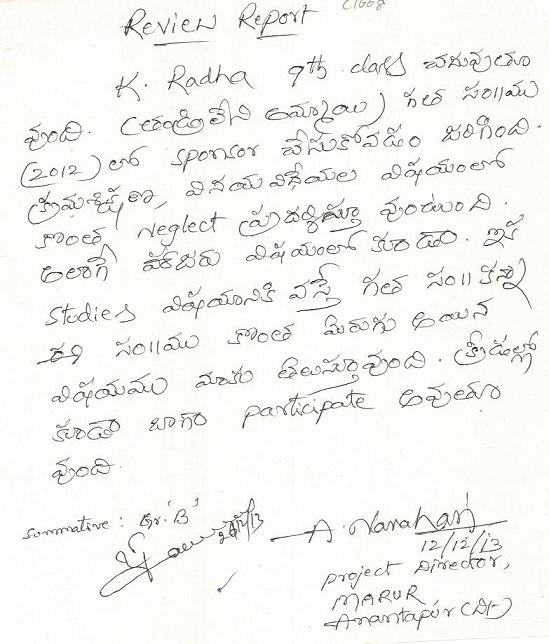 C1608
Review Report
K. Radha 9th class చదువుతూ
వుంది. (తండ్రి లేని అమ్మాయి) గత సం॥ము
(2012) లో sponsor చేసుకోవడం జరిగింది.
క్రమశిక్షణ, వినయ విధేయల విషయంలో
కొంత neglect ప్రదర్శిస్తూ వుంటుంది.
అలాగే హాజరు విషయంలో కూడా. ఇక
studies విషయానికి వస్తే గత సం॥ కన్నా
ఈ సం॥ము కొంత మెరుగు అయిన
విషయము మాకు తెలుస్తూవుంది. క్రీడల్లో
కూడా బాగా participate అవుతూ
వుంది.
summative : Gr. 'B'
A. Narahari
12/12/13
Project Director,
MARUR
Anantapur (Dt)